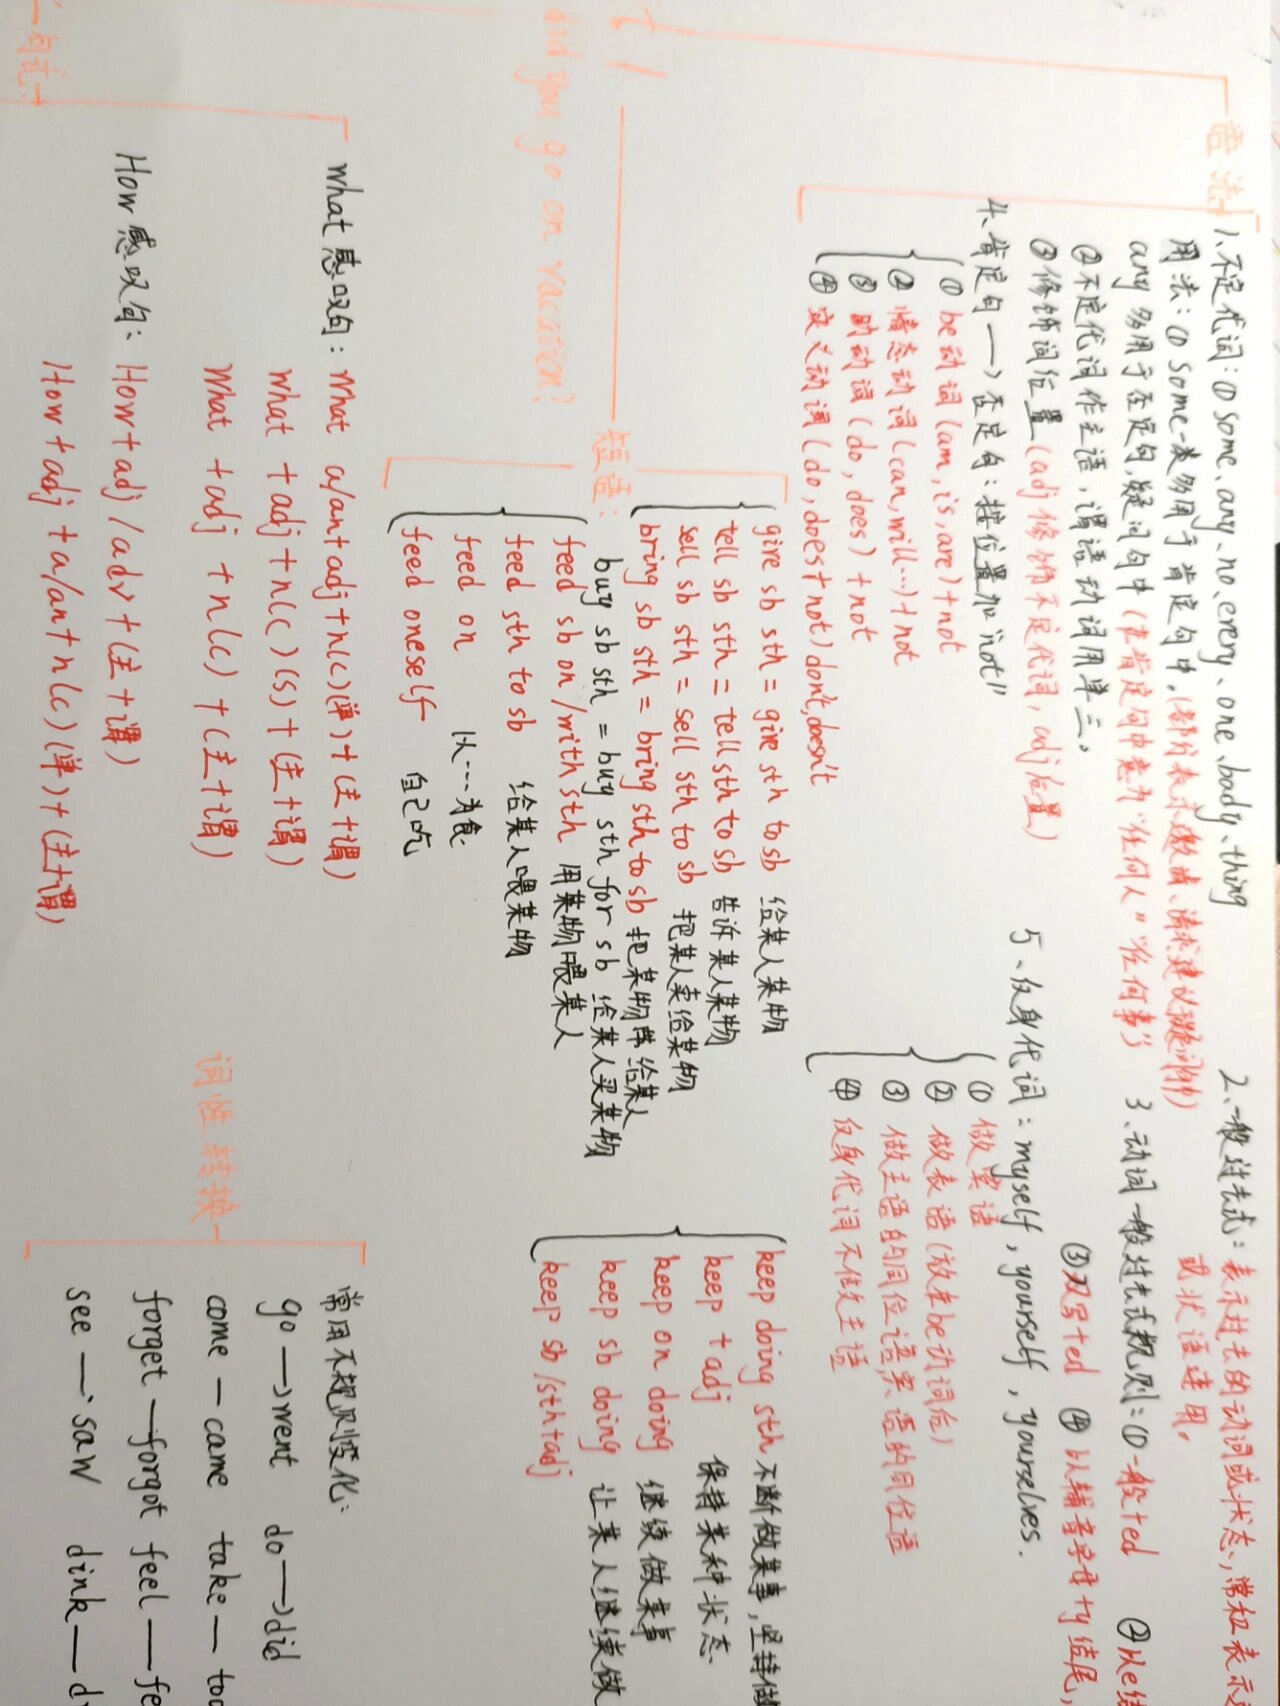 语法
1、不定代词：① some、any、no、every、one、body、thing
用法：① some一类多用于肯定句中，(部分表示邀请、请求建议疑问句中)
any 多用于否定句，疑问句中（在肯定句中意为“任何人”“任何事”）
② 不定代词作主语，谓语动词用单三。
③ 修饰词位置（adj修饰不定代词，adj后置）
2、一般过去式：表示过去的动词或状态，常和表示
或状语连用。
3、动词一般过去式规则：① 一般+ed ②以e结
③双写+ed ④ 以辅音字母+y结尾，
4、肯定句→否定句：按位置加“not”
① be动词(am,is,are)+not
② 情态动词(can,will…)+not
③ 助动词(do,does)+not
④ 实义动词(do,does+not)don't,doesn't
5、反身代词：myself，yourself，yourselves．
① 做宾语
② 做表语(放在be动词后)
③ 做主语的同位语，宾语的同位语
④ 反身代词不作主语
did you go on vacation?
短语：
give sb sth = give sth to sb 给某人某物
tell sb sth = tell sth to sb 告诉某人某物
sell sb sth = sell sth to sb 把某人卖给某物
bring sb sth = bring sth to sb 把某物带给某人
buy sb sth = buy sth for sb 给某人买某物
feed sb on/with sth 用某物喂某人
feed sth to sb 给某人喂某物
feed on 以…为食
feed oneself 自己吃
keep doing sth 不断做某事，坚持做
keep + adj 保持某种状态
keep on doing 继续做某事
keep sb doing 让某人继续做
keep sb/sth+adj
句式
What感叹句：What a/an+adj+n(c)(单)+(主+谓)
what + adj + n(c)(s)+(主+谓)
What + adj + n(c)+(主+谓)
How感叹句：How+adj/adv+(主+谓)
How+adj+a/an+n(c)(单)+(主+谓)
词性转换
常用不规则变化：
go→went do→did
come—came take—too
forget—forgot feel—fe
see—saw dink—d